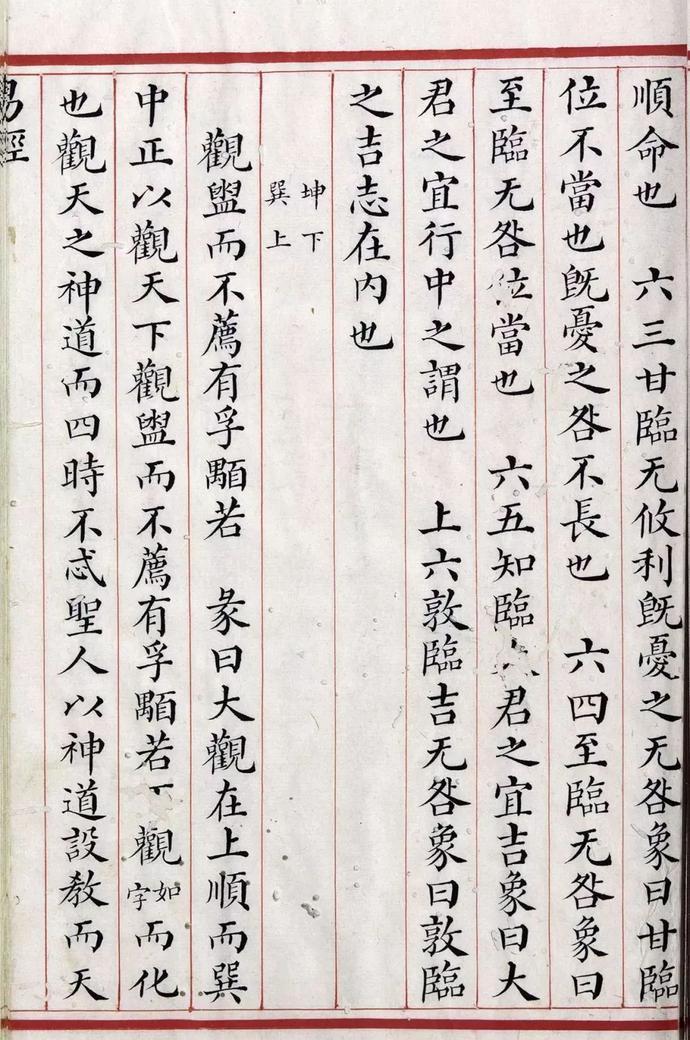 順命也　六三甘臨无攸利既憂之无咎象曰甘臨
位不當也既憂之咎不長也　六四至臨无咎象曰
至臨无咎位當也　六五知臨君之宜吉象曰大
君之宜行中之謂也　上六敦臨吉无咎象曰敦臨
之吉志在內也
坤下
巽上
觀盥而不薦有孚顒若　彖曰大觀在上順而巽
中正以觀天下觀盥而不薦有孚顒若下觀如字而化
也觀天之神道而四時不忒聖人以神道設教而天
易經